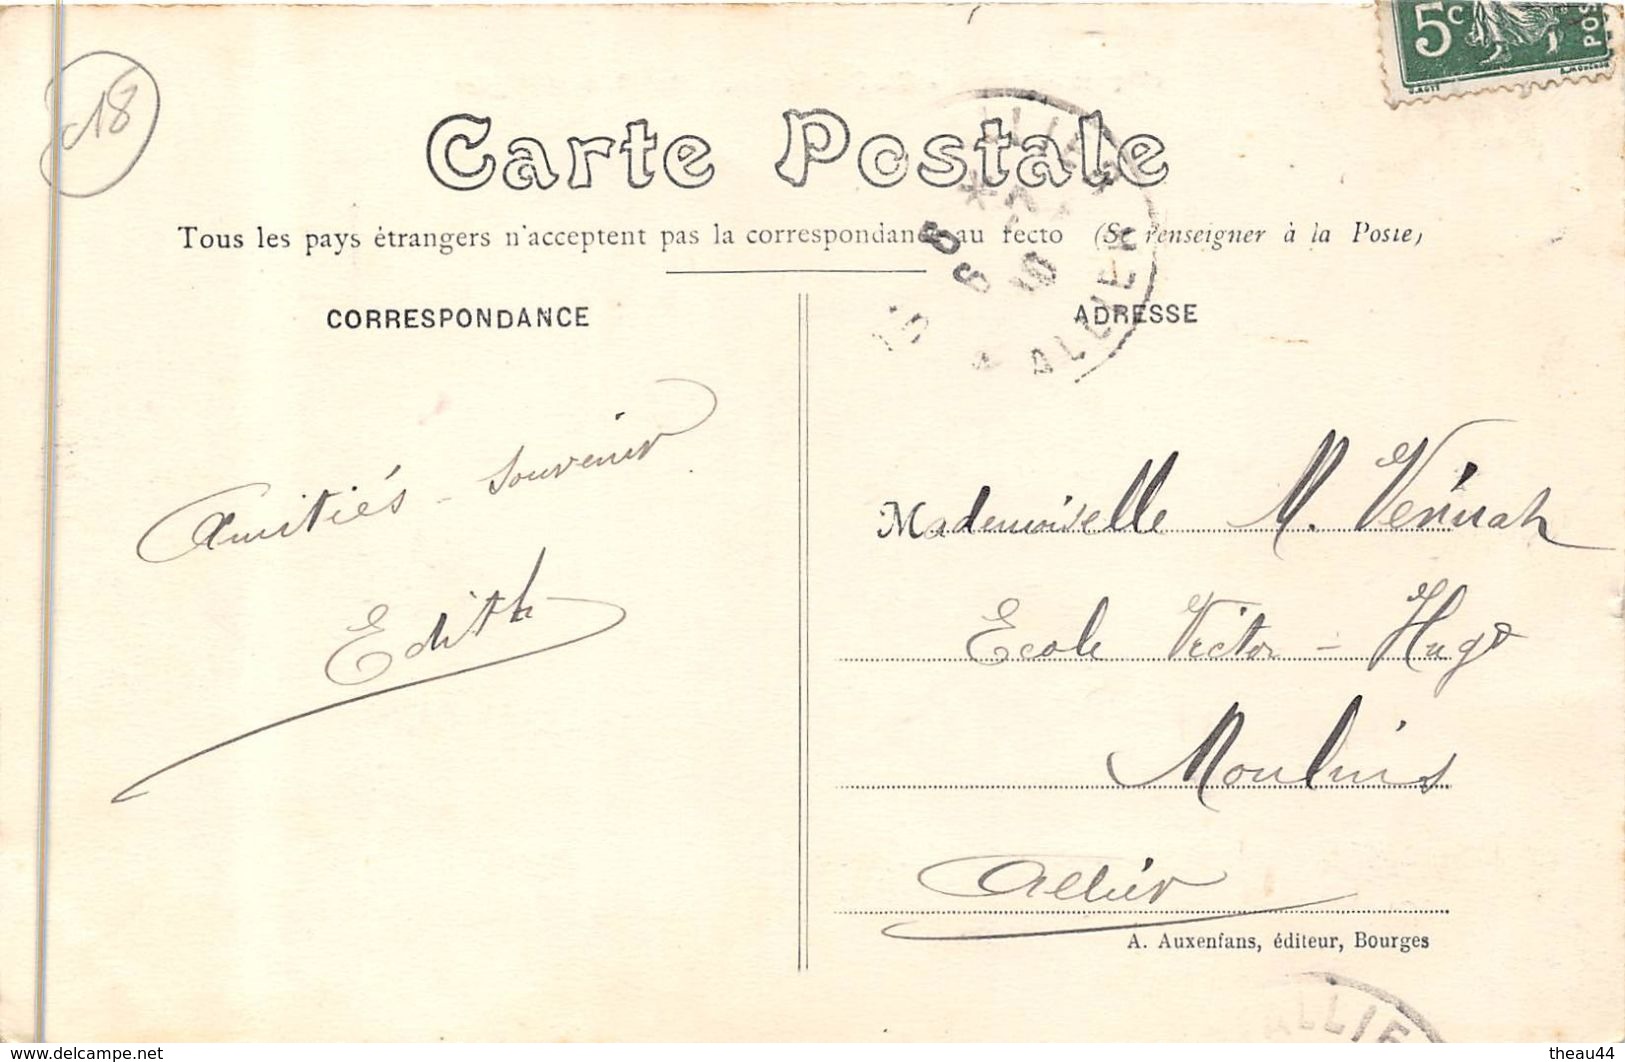 18
5c
POS
Carte Postale
Tous les pays étrangers n'acceptent pas la correspondance au recto (Se renseigner à la Poste)
CORRESPONDANCE
ADRESSE
ALLIER
Amitiés - Souvenir
Edith
Mademoiselle M.
Ecole Victor-Hugo
Moulins
Allier
A. Auxenfans, éditeur, Bourges
ALLIE
www.delcampe.net
theau44